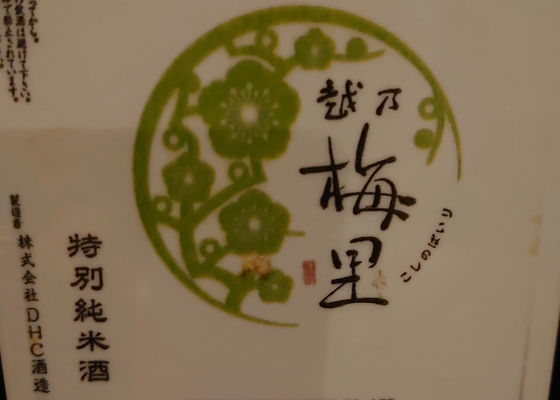 越乃
梅里
こしのばいり
特別純米酒
製造者
株式会社DHC酒造